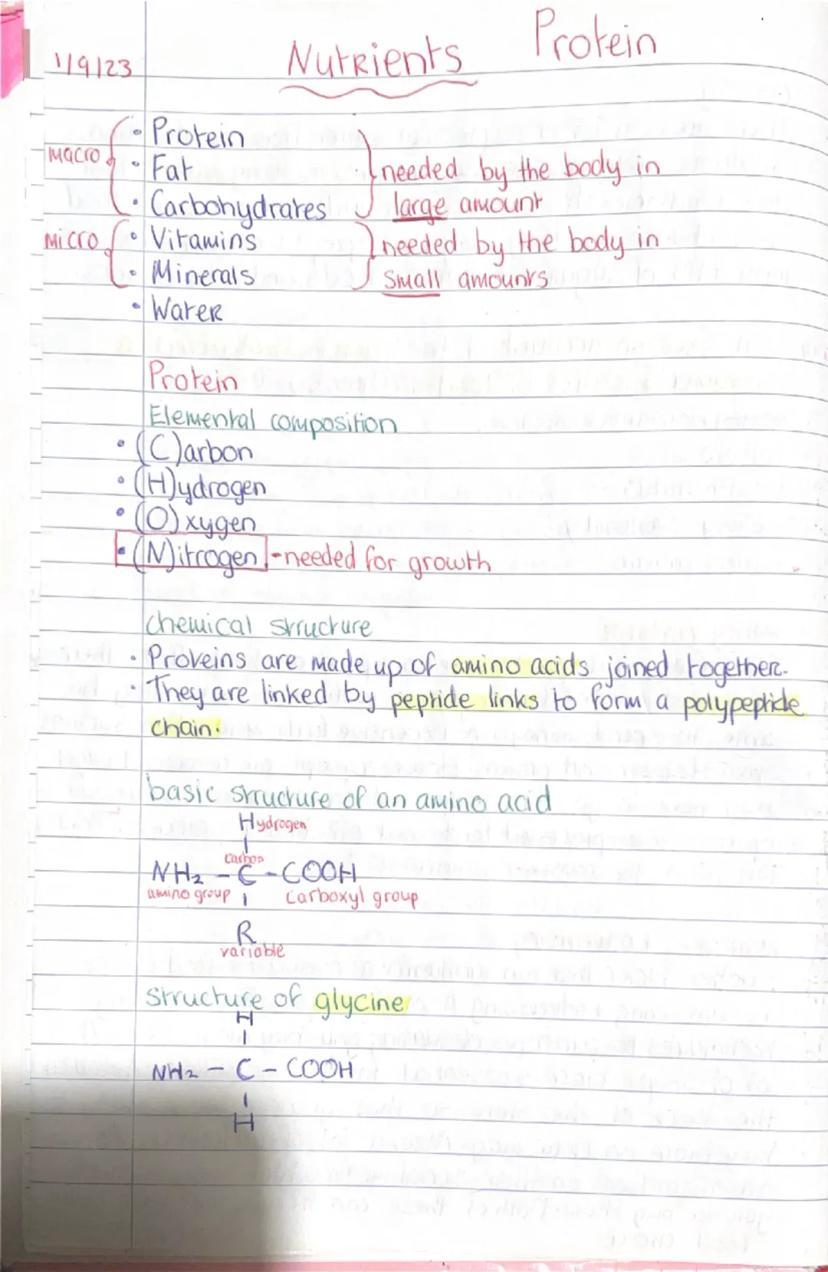 1/9/23 Nutrients Protein
Macro
• Protein
• Fat
• Carbohydrates
needed by the body in
large amount
Micro
• Vitamins
• Minerals
needed by the body in
small amounts
• Water
Protein
Elemental composition
• (C)arbon
• (H)ydrogen
• (O)xygen
• (N)itrogen - needed for growth
chemical structure
• Proteins are made up of amino acids joined together.
• They are linked by peptide links to form a polypeptide
chain.
basic structure of an amino acid
H Hydrogen
carbon
NH₂ - C - COOH
amino group carboxyl group
R
variable
structure of glycine
H
NH₂ - C - COOH
H